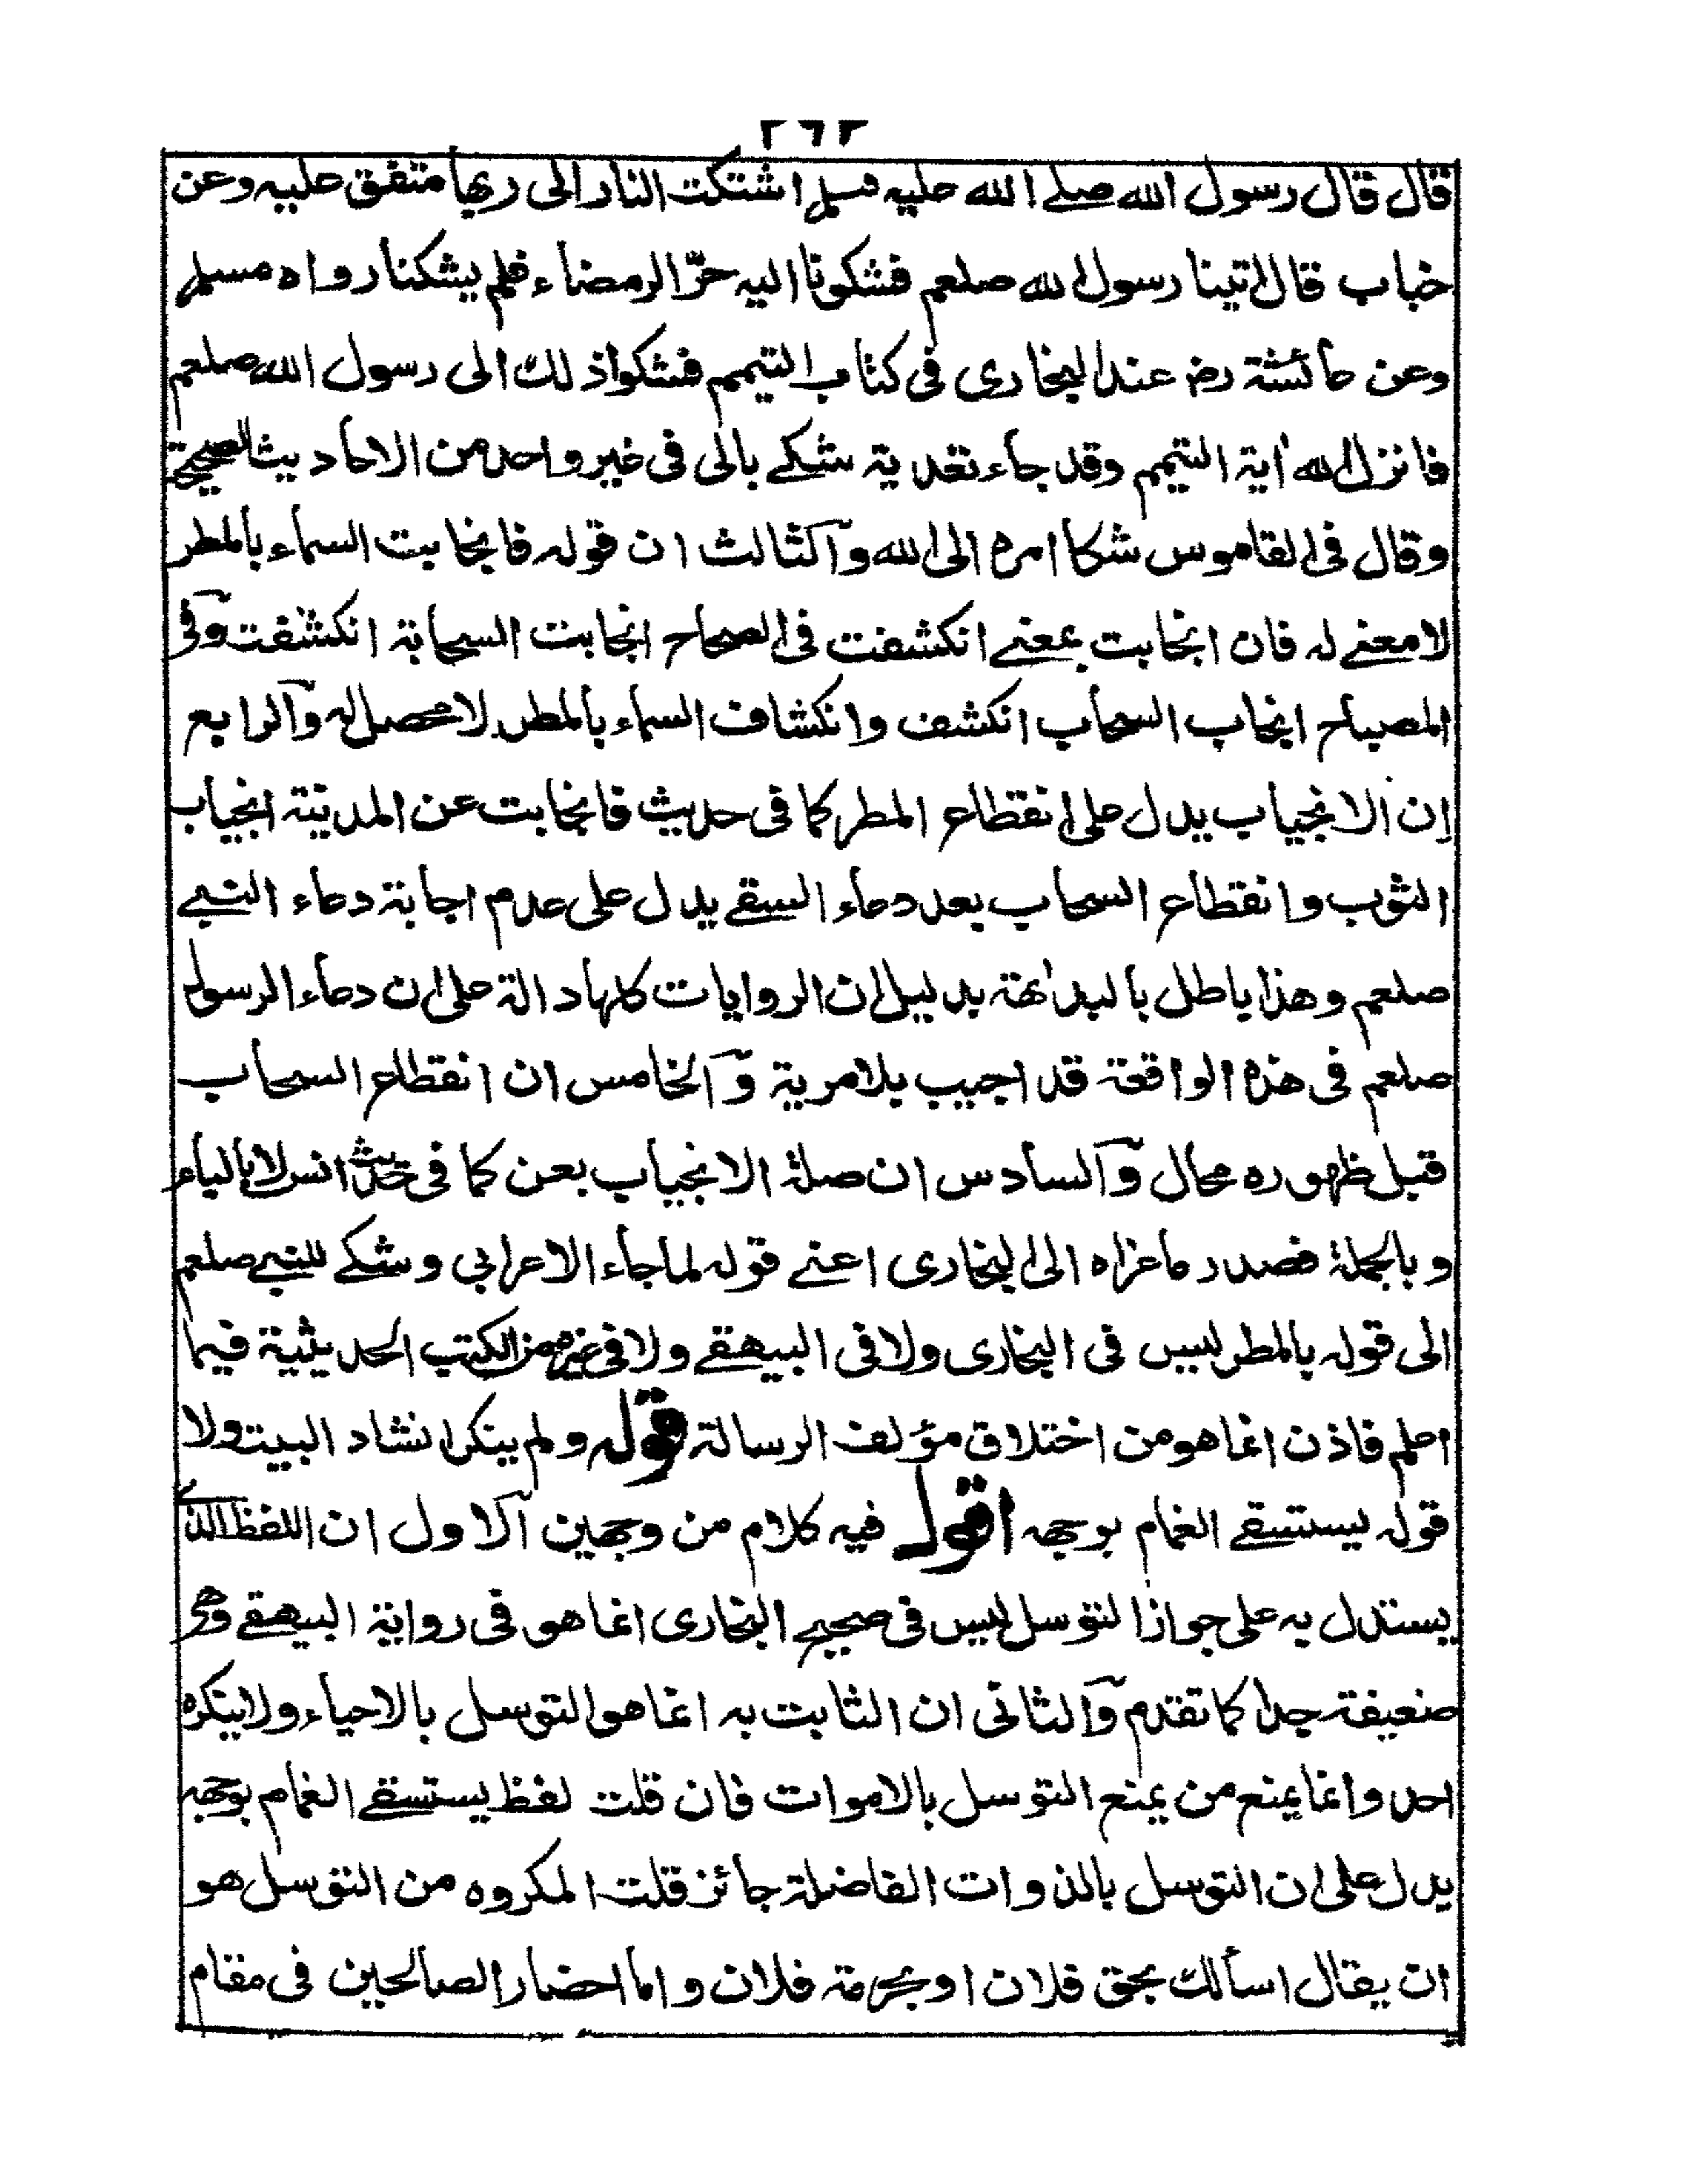 ٢٦٢
قال قال رسول الله صلے الله عليه وسلم اشتكت النار الى ربها متفق عليه وعن
خباب قال اتينا رسول الله صلعم فشكونا اليه حرّ الرمضاء فلم يشكنا رواه مسلم
وعن عائشة رض عند البخارى فى كتاب التيمم فشكوا ذلك الى رسول الله صلعم
فانزل الله اية التيمم وقد جاء تعدية شكے بالى فى غير واحد من الاحاديث الصحيحة
وقال فى القاموس شكا امره الى الله والثالث ان قوله فانجابت السماء بالمطر
لا معنے له فان انجابت بمعنے انكشفت فى الصحاح انجابت السحابة انكشفت وفى
المصباح انجاب السحاب انكشف وانكشاف السماء بالمطر لا محصل له والرابع
ان الانجياب يدل على انقطاع المطر كما فى حديث فانجابت عن المدينة انجياب
الثوب وانقطاع السحاب بعد دعاء السقے يدل على عدم اجابة دعاء النبے
صلعم وهذا باطل بالبداهة بدليل ان الروايات كلها دالة على ان دعاء الرسول
صلعم فى هذه الواقعة قد اجيب بلا مرية والخامس ان انقطاع السحاب
قبل ظهوره محال والسادس ان صلة الانجياب بعن كما فى حديث انس لا بالباء
وبالجملة فصدر ما عزاه الى البخارى اعنے قوله لما جاء الاعرابى وشكے للنبے صلعم
الى قوله بالمطر ليس فى البخارى ولا فى البيهقے ولا فى غيرهما من الكتب الحديثية فيما
اعلم فاذن انما هو من اختلاق مؤلف الرسالة قوله ولم ينكر انشاد البيت ولا
قوله يستسقے الغمام بوجهه اقول فيه كلام من وجهين الاول ان اللفظ الذى
يستدل به على جواز التوسل ليس فى صحيح البخارى انما هو فى رواية البيهقے وهى
ضعيفة جدا كما تقدم والثانى ان الثابت به انما هو التوسل بالاحياء ولا ينكره
احد وانما يمنع من يمنع التوسل بالاموات فان قلت لفظ يستسقے الغمام بوجهه
يدل على ان التوسل بالذوات الفاضلة جائز قلت المكروه من التوسل هو
ان يقال اسألك بحق فلان او بحرمة فلان واما احضار الصالحين فى مقام